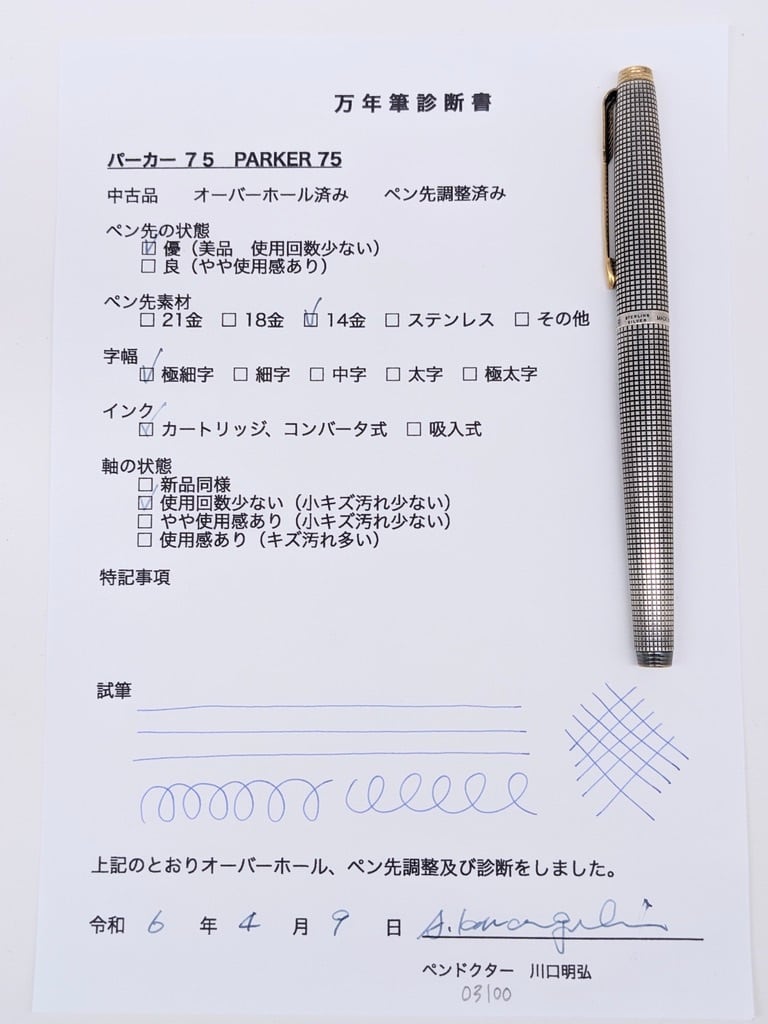 万年筆診断書
パーカー 75 PARKER 75
中古品 オーバーホール済み ペン先調整済み
ペン先の状態
☑ 優（美品 使用回数少ない）
□ 良（やや使用感あり）
ペン先素材
□ 21金 □ 18金 ☑ 14金 □ ステンレス □ その他
字幅
☑ 極細字 □ 細字 □ 中字 □ 太字 □ 極太字
インク
☑ カートリッジ、コンバータ式 □ 吸入式
軸の状態
□ 新品同様
☑ 使用回数少ない（小キズ汚れ少ない）
□ やや使用感あり（小キズ汚れ少ない）
□ 使用感あり（キズ汚れ多い）
特記事項
試筆
上記のとおりオーバーホール、ペン先調整及び診断をしました。
令和 6 年 4 月 9 日
ペンドクター 川口明弘
03100
STERLING
SILVER